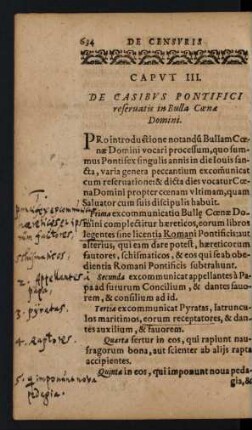 634 DE CENSVRIS
CAPVT III.
DE CASIBVS PONTIFICI
reseruatis in Bulla Cœnæ
Domini.
PRo introductione notandũ Bullam Cœ-
næ Domini vocari processum, quo sum-
mus Pontifex singulis annis in die Iouis san-
cta, varia genera peccantium excõmunicat
cum reseruatione: & dicta dies vocatur Cœ-
na Domini propter cœnam vltimam, quam
Saluator cum suis discipulis habuit.
Prima excommunicatio Bullę Cœnæ Do-
mini complectitur hæreticos, eorum libros
legentes sine licentia Romani Pontificis aut
alterius, qui eam dare potest, hæreticorum
fautores, schismaticos, & eos qui seab obe-
dientia Romani Pontificis subtrahunt.
Secunda excommunicat appellantes à Pa-
pa ad futurum Concilium, & dantes fauo-
rem, & consilium ad id.
Tertia excommunicat Pyratas, latruncu-
los maritimos, eorum receptatores, & dan-
tes auxilium, & fauorem.
Quarta fertur in eos, qui rapiunt nau-
fragorum bona, aut scienter ab alijs rapta
accipientes.
Quinta in eos, qui imponunt noua peda-
gia, &
schismaticos.
2. Appellantes à
papa.
3. pyratas.
4. Raptores.
5. q imponunt noua
pedagia.